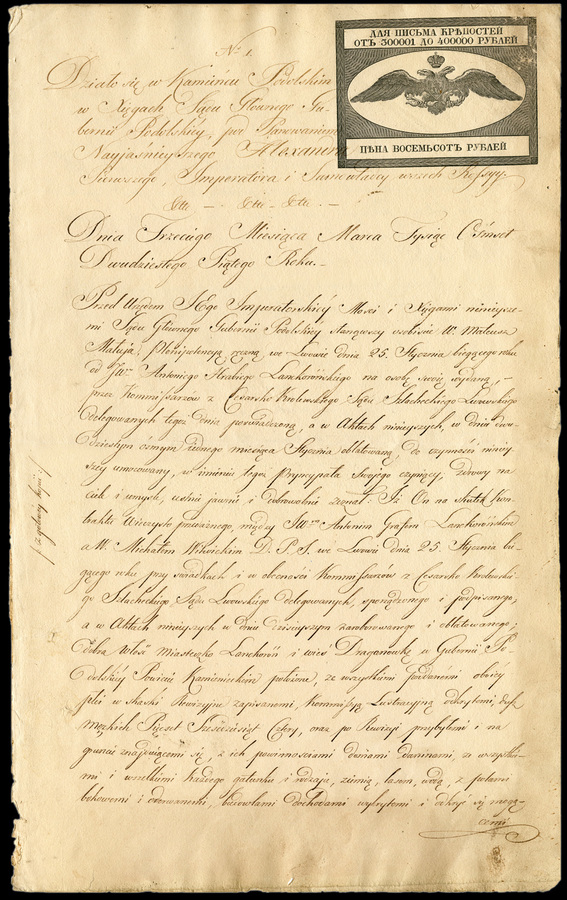 ДЛЯ ПИСЬМА КРѢПОСТЕЙ
ОТЪ 300001 ДО 400000 РУБЛЕЙ
ЦѢНА ВОСЕМЬСОТЪ РУБЛЕЙ
No 1.
Działo się w Kamieńcu Podolskim
w Xięgach Sądu Głównego Gu-
bernii Podolskiey, pod Panowaniem
Nayjaśnieyszego, Alexandra
Pierwszego, Imperatora i Samowładcy wszech Rossyy.
Etta — . Etta . Etta . —
Dnia Trzeciego Miesiąca Marca Tysiąc Ośmset
Dwudziestego Piątego Roku. —
Przed Urzędem JEgo Imperatorskiéy Mości i Xięgami ninieysze-
mi Sądu Głównego Gubernii Podolskiey stanąwszy osobiście W. Mateusz
Matuja, Plenipotencyą ręczną we Lwowie dnia 25. Stycznia bieżącego roku
od JW. Antoniego Hrabiego Lanckorońskiego na osobę swoię wydaną, —
przez Kommissarzów z Cesarsko Krolewskiego Sądu Szlacheckiego Lwowskiego
delegowanych tegoż dnia poświadczoną, a w Aktach ninieyszych, w dniu dwu-
dziestym ósmym miesiąca Stycznia oblatowaną, do czynności niniey-
szey umocowany, w imieniu tegoż Pryncypała Swojego czyniący, zdrowy na
ciele i umyśle, ustnie jawnie i dobrowolnie zeznał: Iż On na skutek Kon-
traktu Wieczysto przedażnego, między JW. Antonim Grafem Lanckorońskim
a W. Michałem D. P. S. we Lwowie dnia 25. Stycznia bie-
żącego roku przy świadkach i w obecności Kommissarzow z Cesarsko Krolewskie-
go Szlacheckiego Sądu Lwowskiego delegowanych, sporządzonego i podpisanego,
a w Aktach ninieyszych w dniu dzisieyszym i oblatowanego;
Dobra Włość Miasteczko Lanckoruń i wieś Draganówkę w Gubernii Po-
dolskiey Powiecie Kamienieckim położone, ze wszystkimi Poddanemi oboiey
płci w skaski Rewizyine zapisanemi, Kommissyą Lustracyiną odkrytemi, dusz
męzkich Pięćset Sześćdziesiąt Cztery, oraz po Rewizyi przybyłemi i na
gruncie znayduiącemi się, z ich powinnościami daniami daninami, ze wszystkie-
mi i wszelkimi każdego gatunku i rodzaju, ziemią, lasem, wodą, z polami
i , dochodami wykrytemi i odkryć się mogą-
cemi